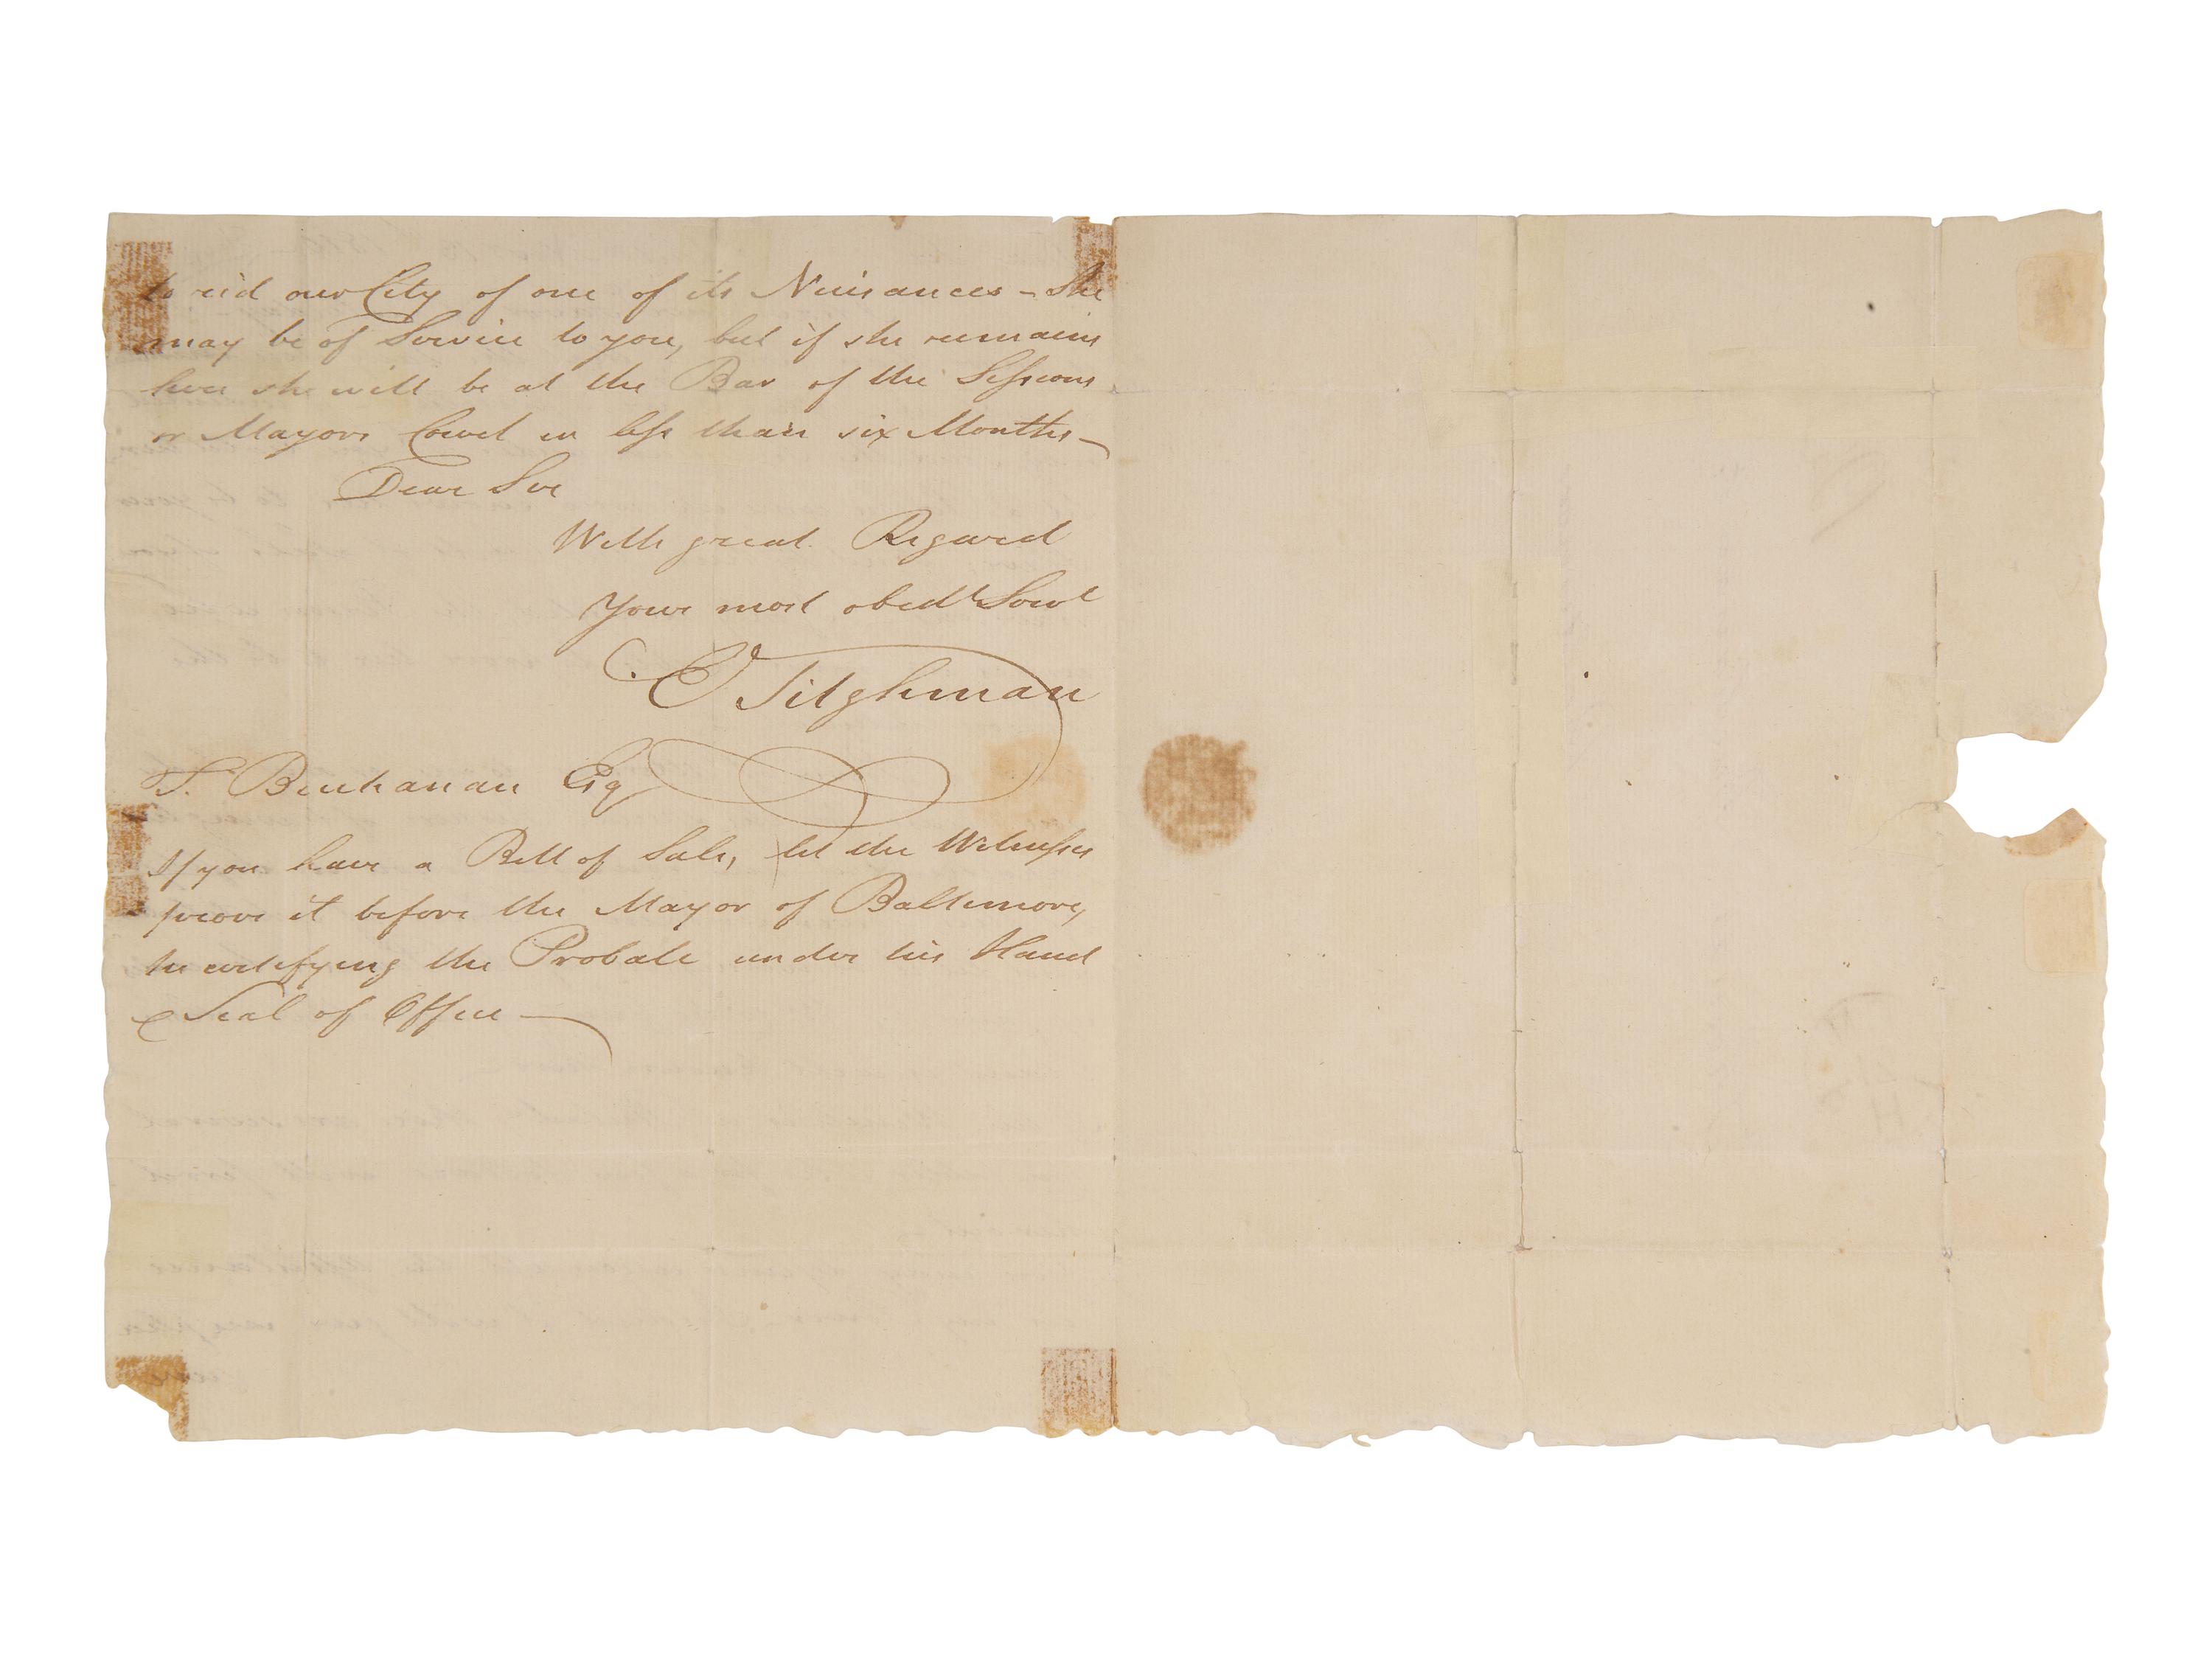 to rid our City of one of its Nuisances – She
may be of Service to you, but if she remains
here she will be at the Bar of the Sessions
or Mayors Court in less than six Months –
Dear Sir
With great Regard
Your most obedt Servt
E Tilghman
T. Buchanan Esq
If you have a Bill of Sale, let the Witnesses
prove it before the Mayor of Baltimore,
he certifying the Probate under his Hand
& Seal of Office –